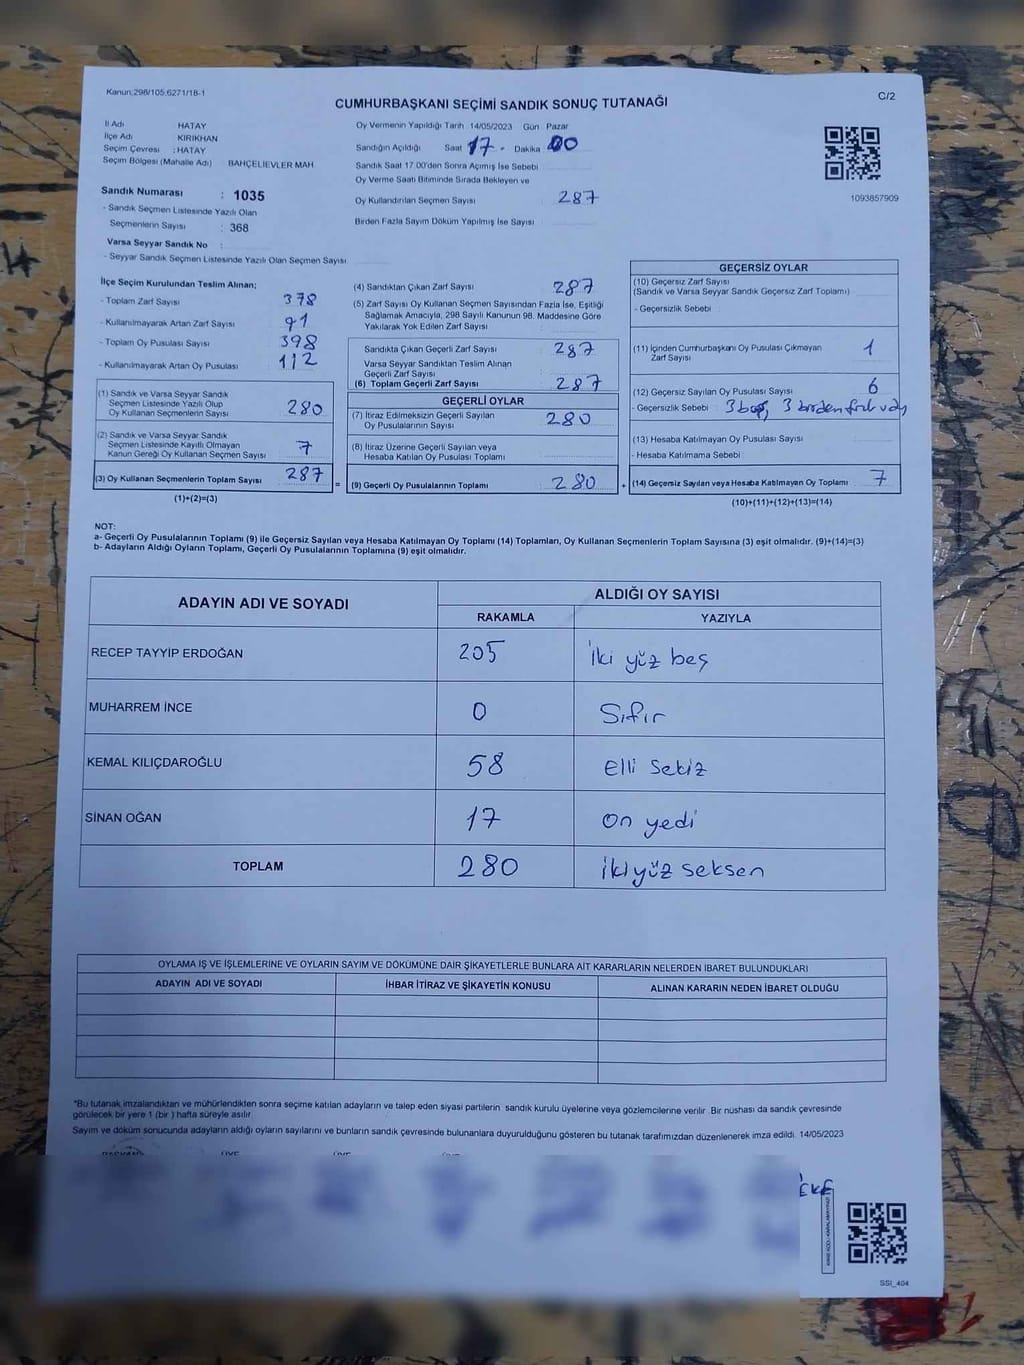 Kanun:298/105.6271/18-1
CUMHURBAŞKANI SEÇİMİ SANDIK SONUÇ TUTANAĞI
C/2
İl Adı HATAY
İlçe Adı KIRIKHAN
Seçim Çevresi :HATAY
Seçim Bölgesi (Mahalle Adı) BAHÇELİEVLER MAH
Sandık Numarası : 1035
- Sandık Seçmen Listesinde Yazılı Olan
Seçmenlerin Sayısı : 368
Varsa Seyyar Sandık No :
- Seyyar Sandık Seçmen Listesinde Yazılı Olan Seçmen Sayısı
Oy Vermenin Yapıldığı Tarih 14/05/2023 Gün Pazar
Sandığın Açıldığı Saat 17 - Dakika 00
Sandık Saat 17.00'den Sonra Açmış İse Sebebi
Oy Verme Saati Bitiminde Sırada Bekleyen ve
Oy Kullandırılan Seçmen Sayısı : 287
Birden Fazla Sayım Döküm Yapılmış İse Sayısı :
1093857909
İlçe Seçim Kurulundan Teslim Alınan;
- Toplam Zarf Sayısı : 378
- Kullanılmayarak Artan Zarf Sayısı : 91
- Toplam Oy Pusulası Sayısı : 398
- Kullanılmayarak Artan Oy Pusulası : 112
(1) Sandık ve Varsa Seyyar Sandık
Seçmen Listesinde Yazılı Olup
Oy Kullanan Seçmenlerin Sayısı : 280
(2) Sandık ve Varsa Seyyar Sandık
Seçmen Listesinde Kayıtlı Olmayan
Kanun Gereği Oy Kullanan Seçmen Sayısı : 7
(3) Oy Kullanan Seçmenlerin Toplam Sayısı : 287
(1)+(2)=(3)
(4) Sandıktan Çıkan Zarf Sayısı : 287
(5) Zarf Sayısı Oy Kullanan Seçmen Sayısından Fazla İse, Eşitliği
Sağlamak Amacıyla, 298 Sayılı Kanunun 98. Maddesine Göre
Yakılarak Yok Edilen Zarf Sayısı :
Sandıkta Çıkan Geçerli Zarf Sayısı : 287
Varsa Seyyar Sandıktan Teslim Alınan
Geçerli Zarf Sayısı :
(6) Toplam Geçerli Zarf Sayısı : 287
GEÇERLİ OYLAR
(7) İtiraz Edilmeksizin Geçerli Sayılan
Oy Pusulalarının Sayısı : 280
(8) İtiraz Üzerine Geçerli Sayılan veya
Hesaba Katılan Oy Pusulası Toplamı :
= (9) Geçerli Oy Pusulalarının Toplamı : 280 +
GEÇERSİZ OYLAR
(10) Geçersiz Zarf Sayısı
(Sandık ve Varsa Seyyar Sandık Geçersiz Zarf Toplamı)
- Geçersizlik Sebebi :
(11) İçinden Cumhurbaşkanı Oy Pusulası Çıkmayan
Zarf Sayısı : 1
(12) Geçersiz Sayılan Oy Pusulası Sayısı : 6
- Geçersizlik Sebebi : 3 boş, 3 birden fazla
(13) Hesaba Katılmayan Oy Pusulası Sayısı :
- Hesaba Katılmama Sebebi :
(14) Geçersiz Sayılan veya Hesaba Katılmayan Oy Toplamı : 7
(10)+(11)+(12)+(13)=(14)
NOT:
a- Geçerli Oy Pusulalarının Toplamı (9) ile Geçersiz Sayılan veya Hesaba Katılmayan Oy Toplamı (14) Toplamları, Oy Kullanan Seçmenlerin Toplam Sayısına (3) eşit olmalıdır. (9)+(14)=(3)
b- Adayların Aldığı Oyların Toplamı, Geçerli Oy Pusulalarının Toplamına (9) eşit olmalıdır.
ADAYIN ADI VE SOYADI ALDIĞI OY SAYISI
RAKAMLA YAZIYLA
RECEP TAYYİP ERDOĞAN 205 iki yüz beş
MUHARREM İNCE 0 Sıfır
KEMAL KILIÇDAROĞLU 58 Elli Sekiz
SİNAN OĞAN 17 On yedi
TOPLAM 280 iki yüz seksen
OYLAMA İŞ VE İŞLEMLERİNE VE OYLARIN SAYIM VE DÖKÜMÜNE DAİR ŞİKAYETLERLE BUNLARA AİT KARARLARIN NELERDEN İBARET BULUNDUKLARI
ADAYIN ADI VE SOYADI İHBAR İTİRAZ VE ŞİKAYETİN KONUSU ALINAN KARARIN NEDEN İBARET OLDUĞU
*Bu tutanak imzalandıktan ve mühürlendikten sonra seçime katılan adayların ve talep eden siyasi partilerin sandık kurulu üyelerine veya gözlemcilerine verilir. Bir nüshası da sandık çevresinde
görülecek bir yere 1 (bir ) hafta süreyle asılır.
Sayım ve döküm sonucunda adayların aldığı oyların sayılarını ve bunların sandık çevresinde bulunanlara duyurulduğunu gösteren bu tutanak tarafımızdan düzenlenerek imza edildi. 14/05/2023
SSİ_404